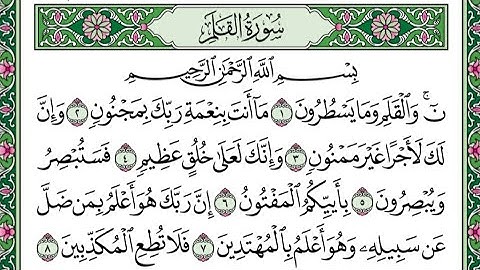 سُورَةُ القَلَمِ
بِسْمِ اللَّهِ الرَّحْمَٰنِ الرَّحِيمِ
نٓ ۚ وَالْقَلَمِ وَمَا يَسْطُرُونَ ١ مَآ أَنتَ بِنِعْمَةِ رَبِّكَ بِمَجْنُونٍ ٢ وَإِنَّ
لَكَ لَأَجْرًا غَيْرَ مَمْنُونٍ ٣ وَإِنَّكَ لَعَلَىٰ خُلُقٍ عَظِيمٍ ٤ فَسَتُبْصِرُ
وَيُبْصِرُونَ ٥ بِأَييِّكُمُ الْمَفْتُونُ ٦ إِنَّ رَبَّكَ هُوَ أَعْلَمُ بِمَن ضَلَّ
عَن سَبِيلِهِۦ وَهُوَ أَعْلَمُ بِالْمُهْتَدِينَ ٧ فَلَا تُطِعِ الْمُكَذِّبِينَ ٨